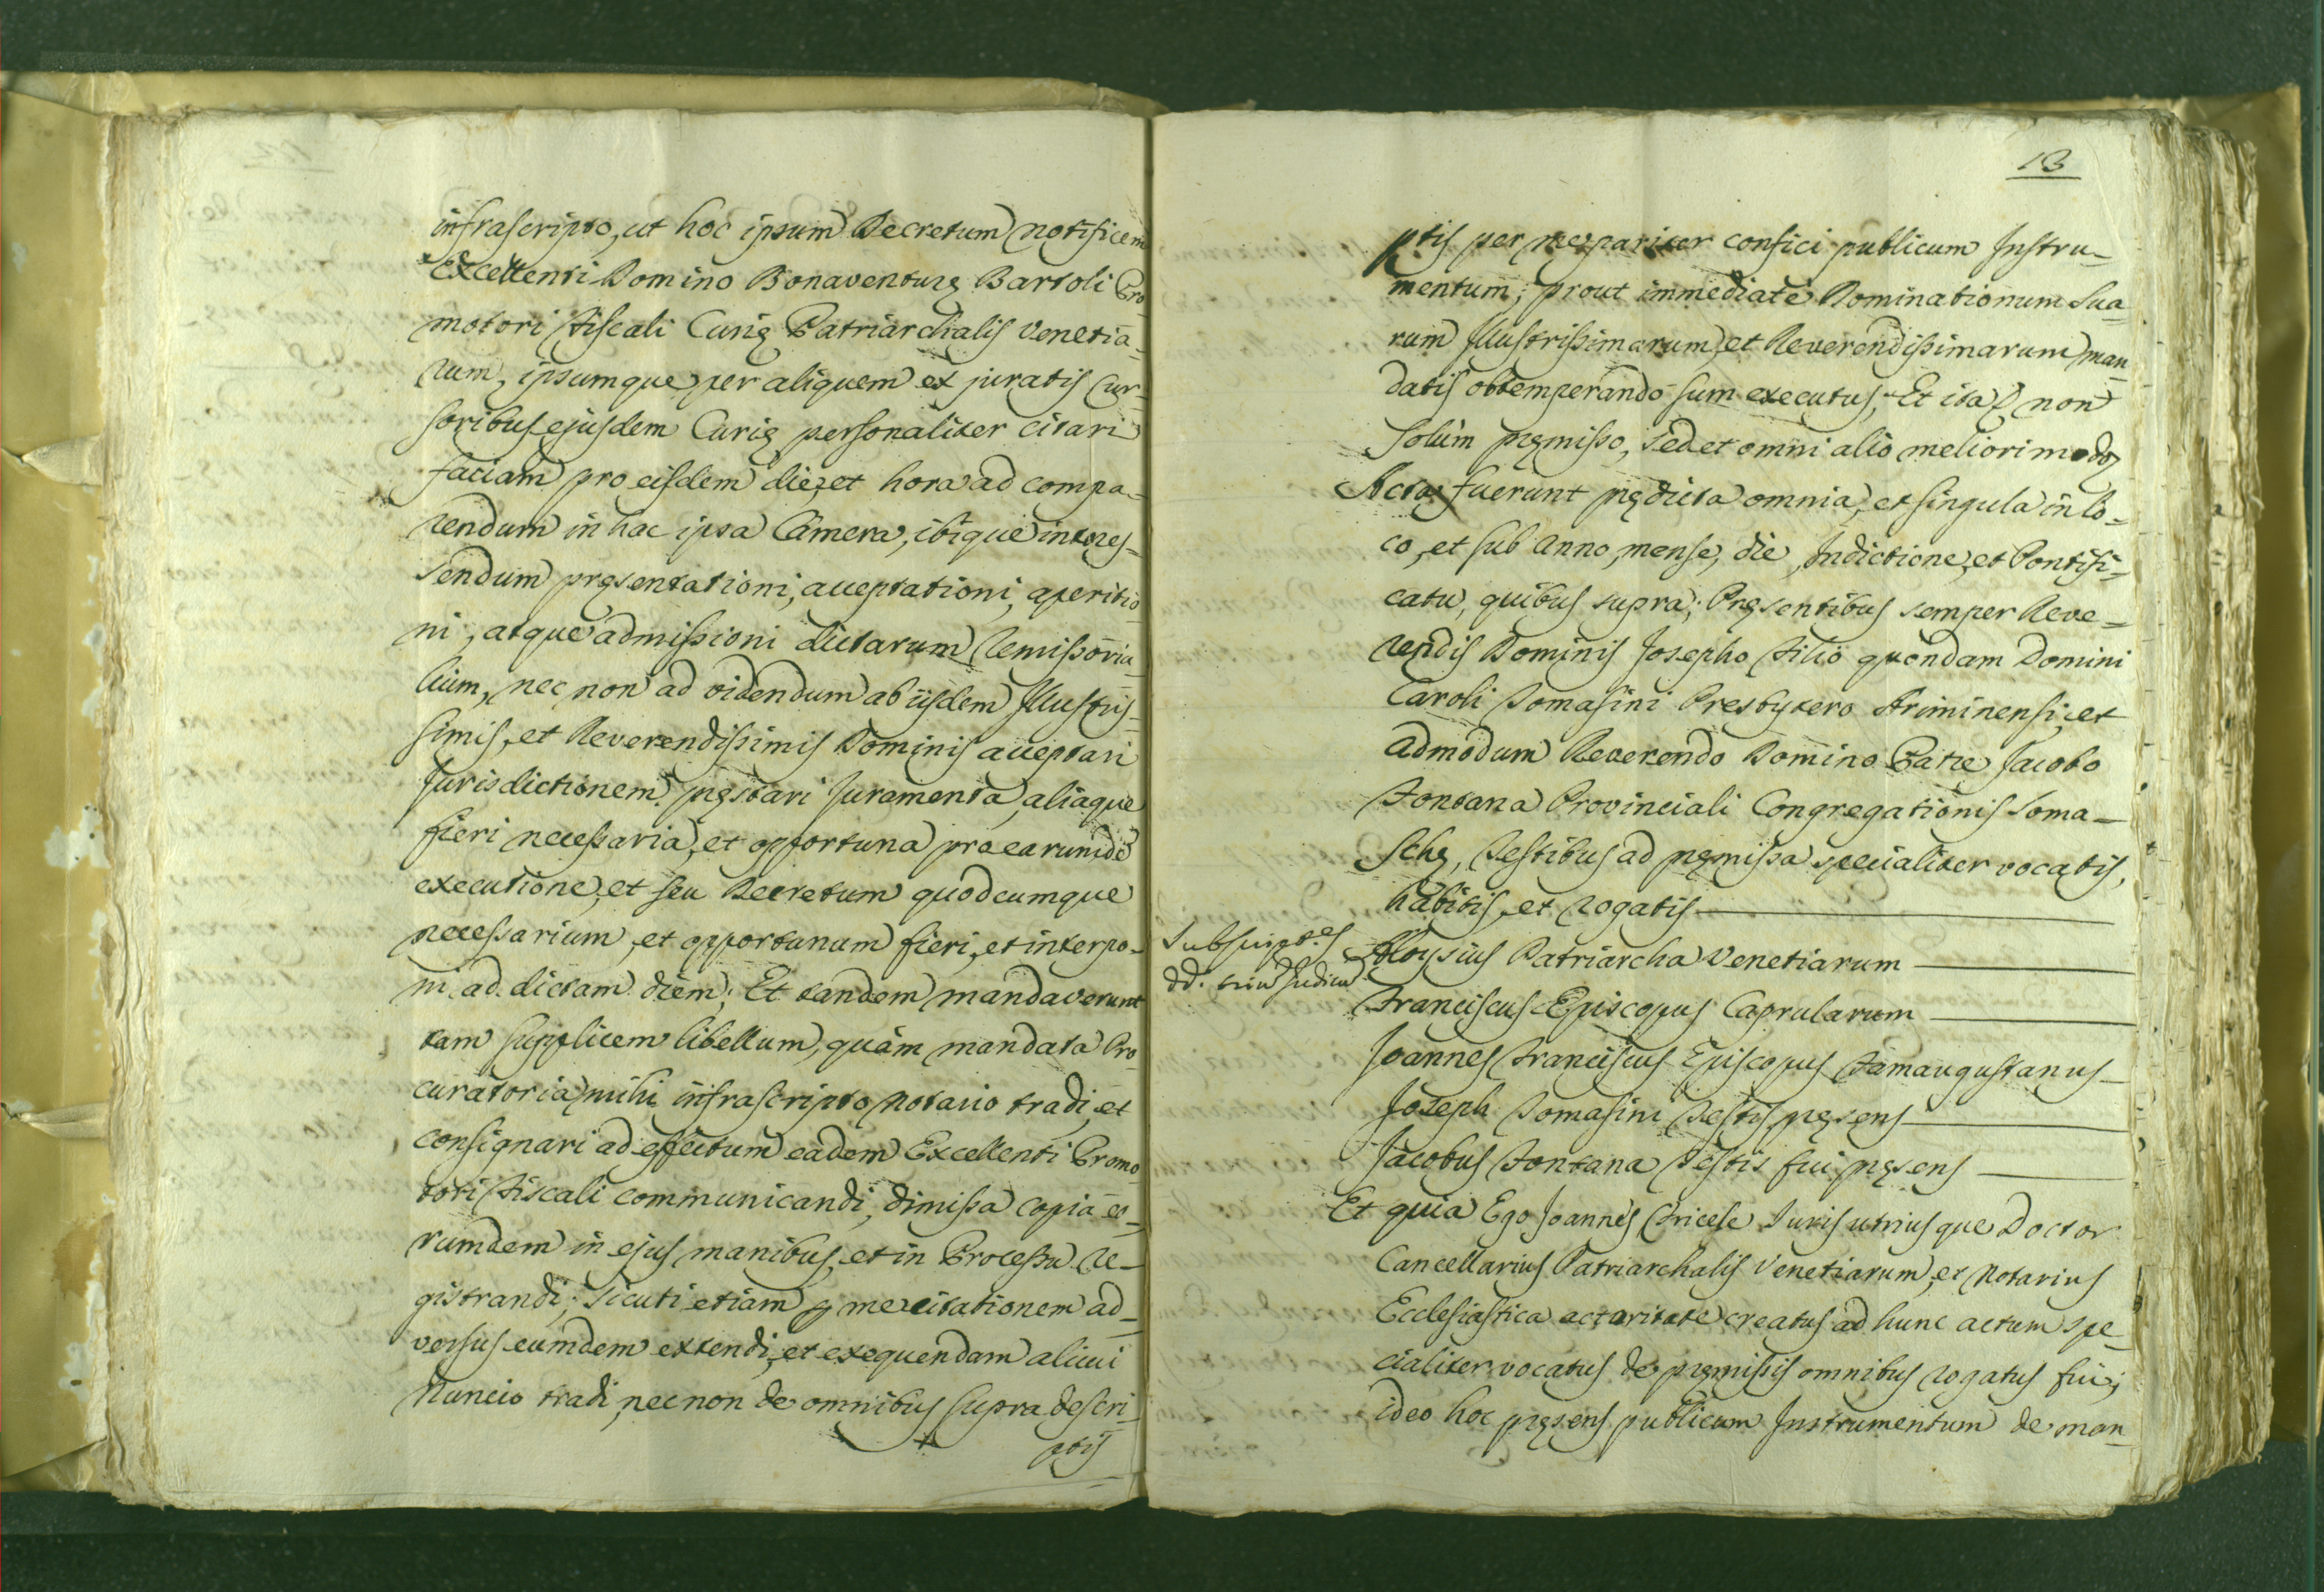 infrascripto, ut hoc ipsum Decretum notificem
Excellenti Domino Bonaventurę Bartoli Pro
motori Fiscali Curię Patriarchalis Venetia-
rum, ipsumque per aliquem ex juratis Cur-
soribus ejusdem Curię personaliter citari
faciam pro eisdem die, et hora ad compa-
rendum in hac ipsa Camera, ibique interes-
sendum pręsentationi, acceptationi, aperitio
ni, atque admissioni dictarum Remissoria
lium, nec non ad videndum ab iisdem Illustris-
simis, et Reverendissimis Dominis acceptari
Jurisdictionem, pręstari Juramenta, aliaque
fieri necessaria, et opportuna pro earumdē
executione, et seu Decretum quodcumque
necessarium, et opportunum fieri, et interpo-
ni ad dictam diem; Et tandem mandaverunt
tam supplicem libellum, quàm mandata Pro
curatoria mihi infrascripto Notario tradi, et
consignari ad effectum eadem Excellenti Promo
tori Fiscali communicandi, dimissa copia eo-
rumdem in ejus manibus, et in Processu re-
gistrandi; sicuti etiam p me citationem ad-
versus eumdem extendi, et exequendam alicui
Nuncio tradi, nec non de omnibus supra descri-
ptis
13
ptis per me pariter confici publicum Instru-
mentum; prout immediatè Dominationum Sua-
rum Illustrissimarum, et Reverendissimarum man
datis obtemperando sum executus; Et ita non
solùm pręmisso, sed et omni alio meliori modo
Acta fuerunt prędicta omnia, et singula in lo-
co, et sub Anno, mense, die, Indictione, et Pontifi-
catu, quibus supra; Pręsentibus semper Reve-
rendis Dominis Josepho Filio quondam Domini
Caroli Tomasini Presbytero Ariminensi, et
admodum Reverendo Domino Patre Jacobo
Fontana Provinciali Congregationis Soma-
schę, Testibus ad pręmissa specialiter vocatis,
habitis, et rogatis
Subscript.es
dd. Judicum
Aloysius Patriarcha Venetiarum
Franciscus Episcopus Caprularum
Joannes Franciscus Episcopus Famaugustanus
Joseph Tomasini Testis pręsens
Jacobus Fontana Testis fui pręsens
Et quia Ego Joannes Juris utriusque Doctor
Cancellarius Patriarchalis Venetiarum, et Notarius
Ecclesiastica actoritate creatus ad hunc actum spe
cialiter vocatus de pręmissis omnibus rogatus fui;
ideo hoc pręsens publicum Instrumentum de man-